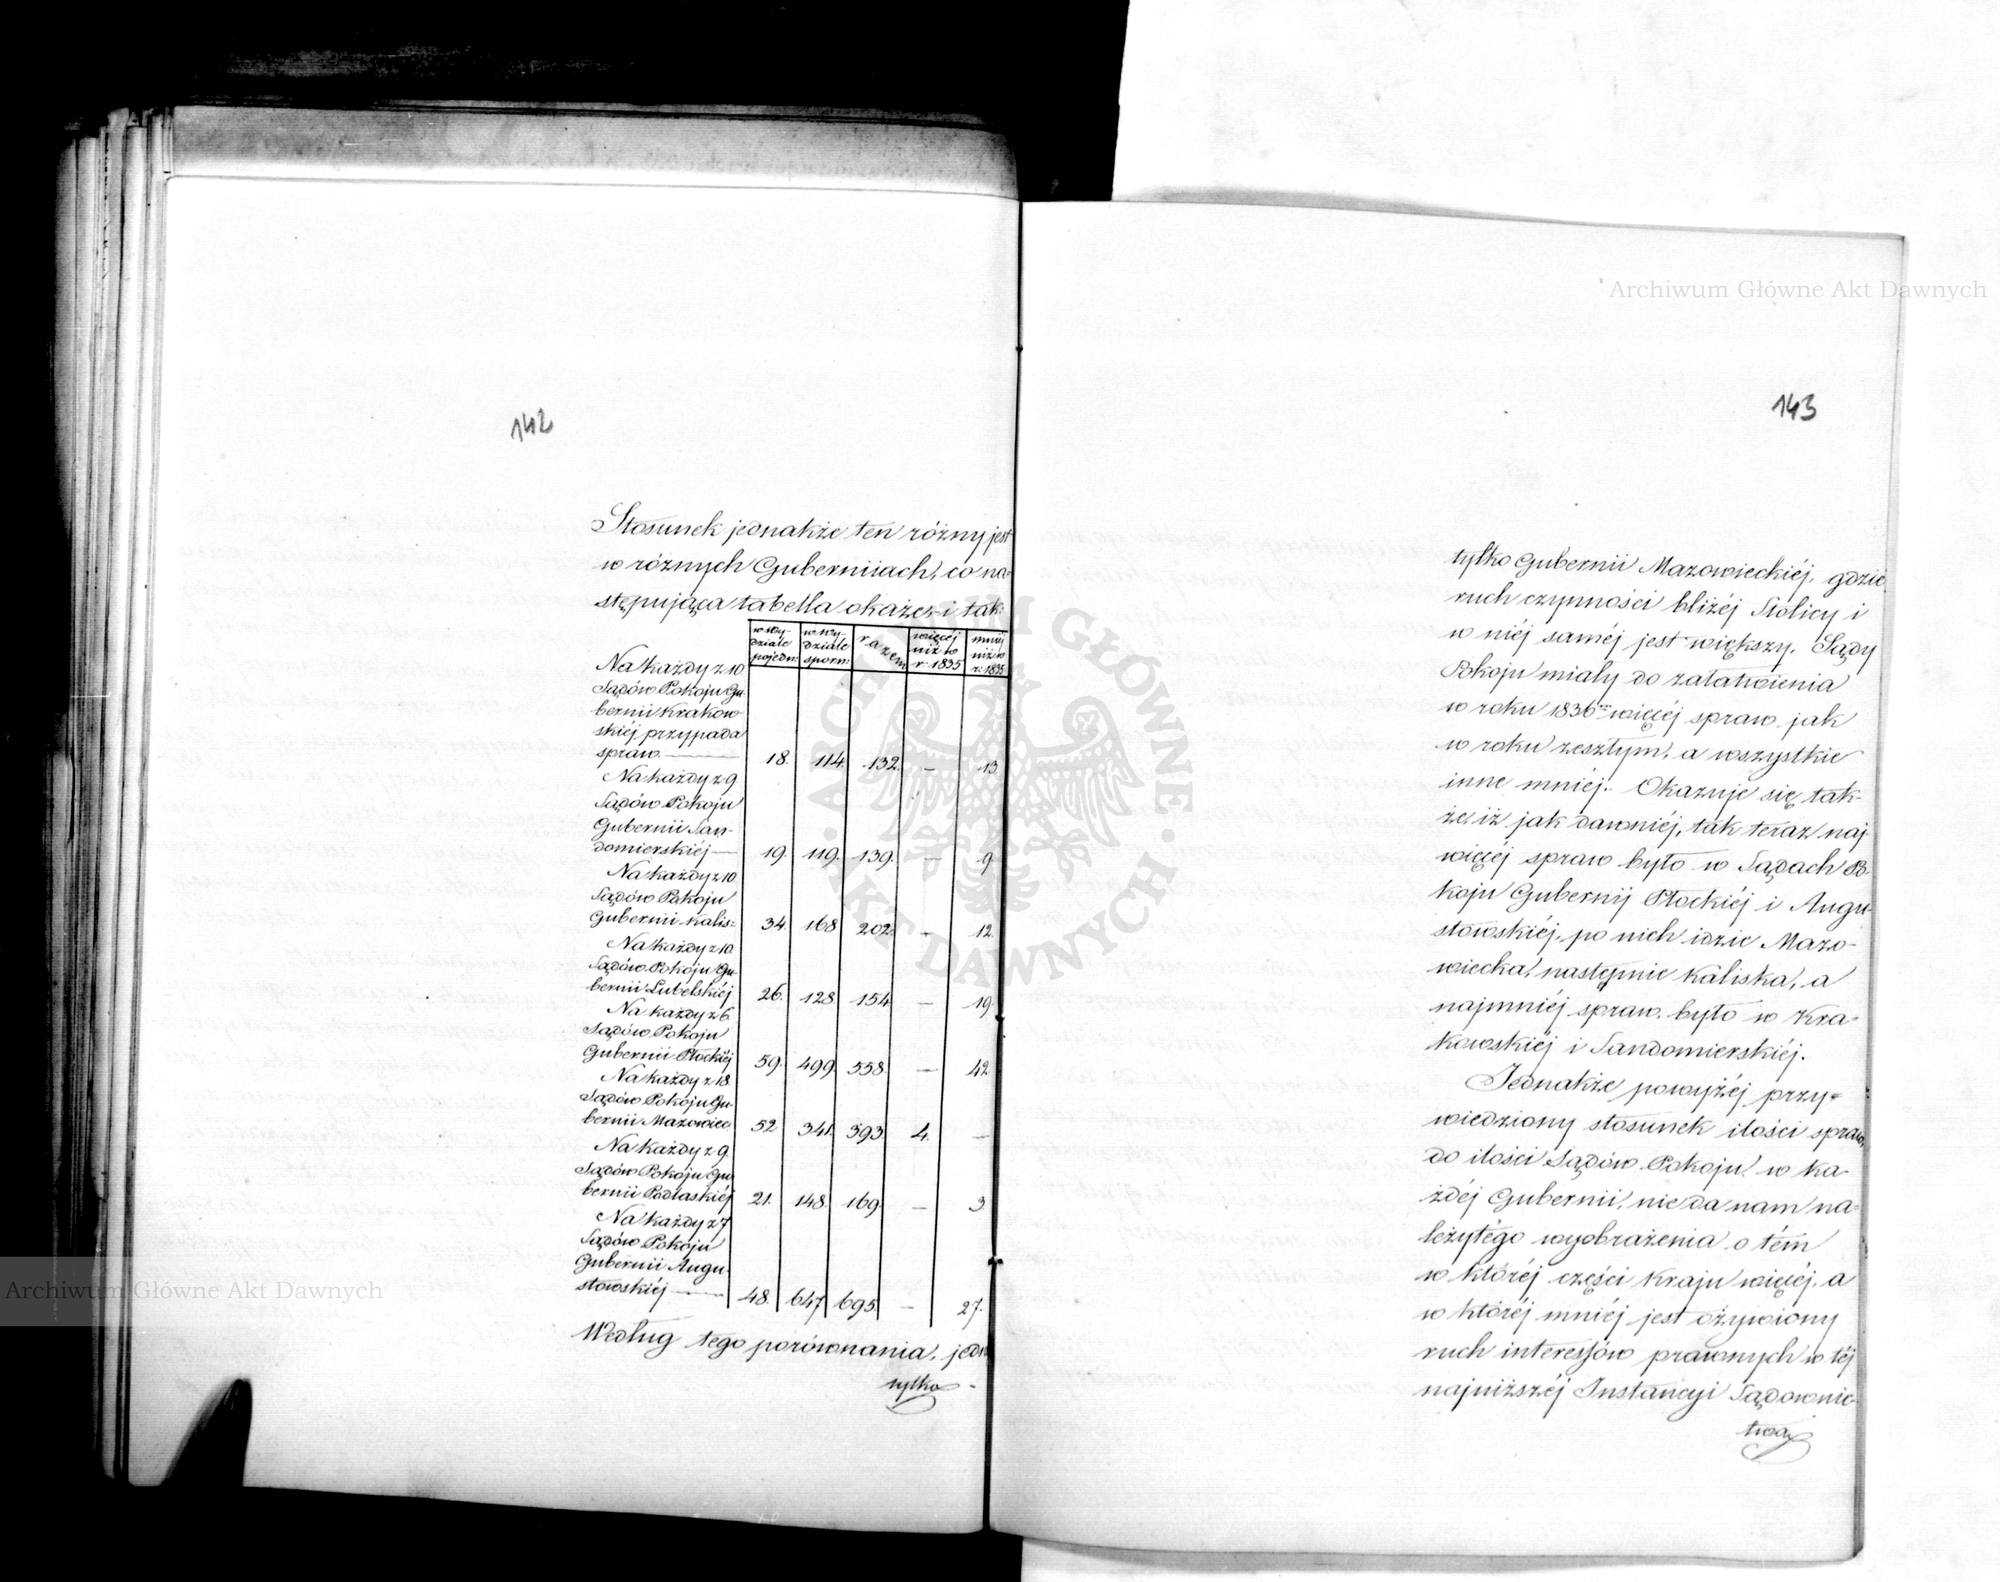 142
Stosunek jednakże ten różny jest
w różnych Guberniiach, co na=
stępująca tabella okaże, i tak:
w Wy-
dziale
pojedn:
w Wy-
dziale
sporn:
razem
więcéj
niż w
r. 1835
mniéj
niż w
r. 1835
Na każdy z 10
Sądów Pokoju Gu-
bernii Krakow-
skiéj przypada
spraw. 18. 114. 132. — 13
Na każdy z 9
Sądów Pokoju
Gubernii San-
domierskiéj 19. 119. 139. — 9
Na każdy z 10
Sądów Pokoju
Gubernii Kalis: 34. 168 202. — 12.
Na każdy z 10.
Sądów Pokoju Gu-
bernii Lubelskiéj 26. 128 154 — 19.
Na każdy z 6.
Sądów Pokoju
Gubernii Płockiéj 59. 499. 558. — 42.
Na każdy z 18.
Sądów Pokoju Gu-
bernii Mazowiec 52 341. 393. 4. —
Na każdy z 9.
Sądów Pokoju Gu-
bernii Podlaskiéj 21. 148. 169. — 3
Na każdy z 7
Sądów Pokoju
Gubernii Augu-
stowskiéj 48. 647 695. — 27.
Według tego porównania, jedn
tylko
143
tylko Gubernii Mazowieckiéj, gdzie
ruch czynności bliżéj Stolicy i
w niéj saméj jest większy, Sądy
Pokoju miały do załatwienia
w roku 1836 więcéj spraw jak
w roku zeszłym, a wszystkie
inne mniéj. Okazuje się tak-
że, iż jak dawniéj, tak teraz naj-
więcéj spraw było w Sądach Po-
koju Gubernij Płockiéj i Augu-
stowskiéj, po nich idzie Mazo-
wiecka, następnie Kaliska, a
najmniéj spraw było w Kra-
kowskiéj i Sandomierskiéj.
Jednakże powyżéj przy=
wiedziony stosunek ilości spraw,
do ilości Sądów Pokoju w ka-
żdéj Gubernii, nie da nam na-
leżytégo wyobrażenia o tém
w któréj części Kraju więcéj, a
w któréj mniéj jest ożywiony
ruch interessów prawnych w téj
najniższéj Instancyi Sądownic-
twa
Archiwum Główne Akt Dawnych
Archiwum Główne Akt Dawnych
ARCHIWUM GŁÓWNE
AKT DAWNYCH